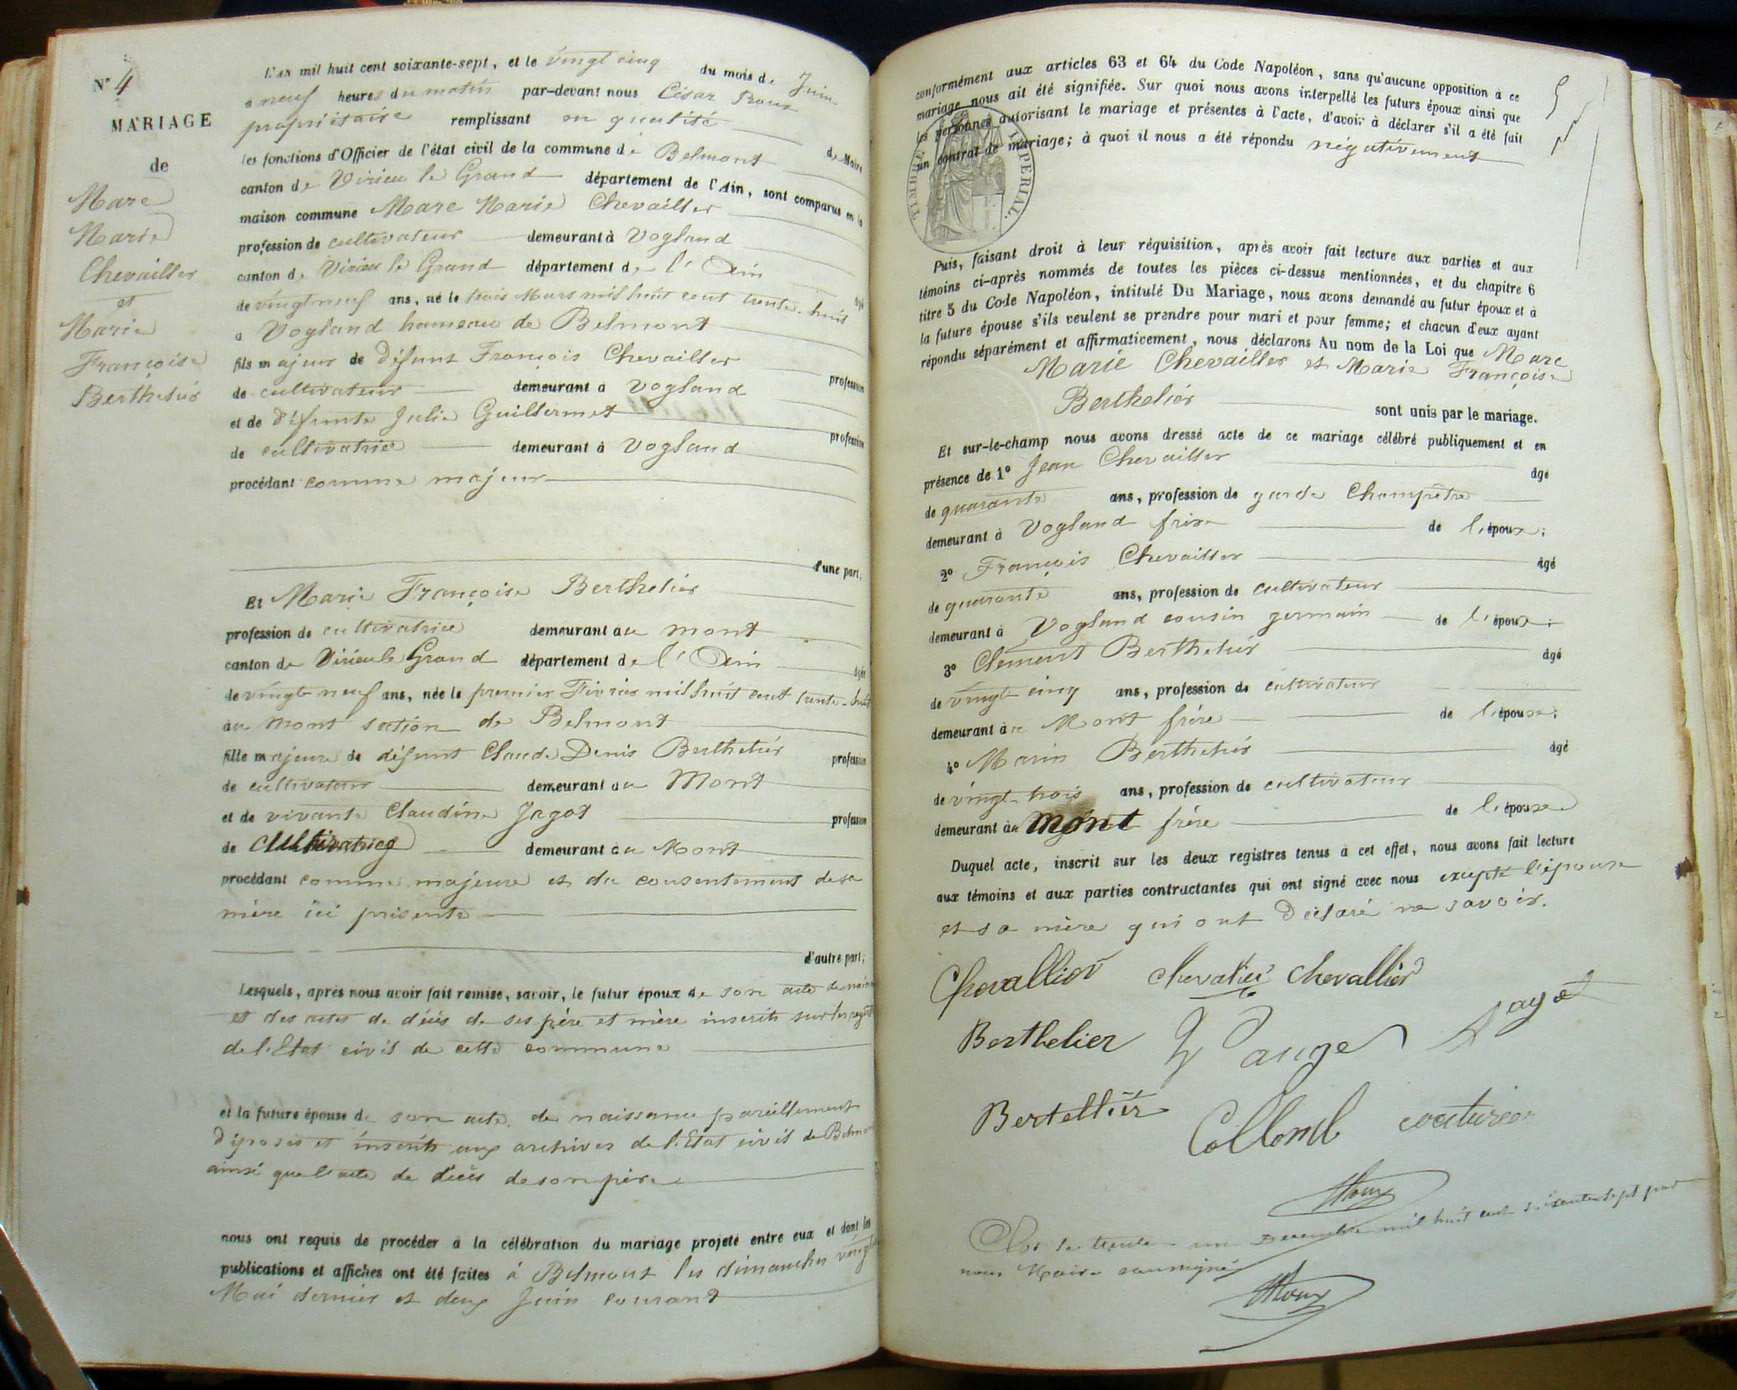 N° 4
MARIAGE
de
Marc
Marie
Chevailler
et
Marie
Françoise
Berthelier
L'an mil huit cent soixante-sept, et le vingt cinq du mois de Juin
à neuf heures du matin par-devant nous César Roux
propriétaire remplissant en qualité de Maire
les fonctions d'Officier de l'état civil de la commune de Belmont
canton de Virieu le Grand département de l'Ain, sont comparus en la
maison commune Marc Marie Chevailler
profession de cultivateur demeurant à Vogland
canton de Virieu le Grand département de l'Ain
de vingt neuf ans, né le trois Mars mil huit cent trente-huit
à Vogland hameau de Belmont
fils majeur de défunt François Chevailler profession
de cultivateur demeurant à Vogland
et de défunte Julie Guillermet profession
de cultivatrice demeurant à Vogland
procédant comme majeur
d'une part,
Et Marie Françoise Berthelier
profession de cultivatrice demeurant au mont
canton de Virieu le Grand département de l'Ain âgée
de vingt neuf ans, née le premier Février mil huit cent trente-huit
au mont section de Belmont
fille majeure de défunt Claude Denis Berthelier profession
de cultivateur demeurant au Mont
et de vivante Claudine Jagot profession
de cultivatrice demeurant au Mont
procédant comme majeure et du consentement de sa
mère ici présente
d'autre part;
Lesquels, après nous avoir fait remise, savoir, le futur époux de son acte de
et des actes de décès de ses père et mère inscrits sur les
de l'Etat civil de cette commune
et la future épouse de son acte de naissance pareillement
déposés et inscrits aux archives de l'Etat civil de
ainsi que l'acte de décès de son père
nous ont requis de procéder à la célébration du mariage projeté entre eux et dont les
publications et affiches ont été faites à Belmont les dimanches
Mai dernier et deux Juin courant
conformément aux articles 63 et 64 du Code Napoléon, sans qu'aucune opposition à ce
mariage nous ait été signifiée. Sur quoi nous avons interpellé les futurs époux ainsi que
les personnes autorisant le mariage et présentes à l'acte, d'avoir à déclarer s'il a été fait
un contrat de mariage; à quoi il nous a été répondu négativement
TIMBRE IMPÉRIAL.
Puis, faisant droit à leur réquisition, après avoir fait lecture aux parties et aux
témoins ci-après nommés de toutes les pièces ci-dessus mentionnées, et du chapitre 6
titre 5 du Code Napoléon, intitulé Du Mariage, nous avons demandé au futur époux et à
la future épouse s'ils veulent se prendre pour mari et pour femme; et chacun d'eux ayant
répondu séparément et affirmativement, nous déclarons Au nom de la Loi que Marc
Marie Chevailler et Marie Françoise
Berthelier sont unis par le mariage.
Et sur-le-champ nous avons dressé acte de ce mariage célébré publiquement et en
présence de 1° Jean Chevailler âgé
de quarante ans, profession de garde Champêtre
demeurant à Vogland frère de l'époux;
2° François Chevailler âgé
de quarante ans, profession de cultivateur
demeurant à Vogland cousin germain de l'époux;
3° Clément Berthelier âgé
de vingt cinq ans, profession de cultivateur
demeurant au Mont frère de l'épouse;
4° Marin Berthelier âgé
de vingt-trois ans, profession de cultivateur
demeurant au mont frère de l'épouse
Duquel acte, inscrit sur les deux registres tenus à cet effet, nous avons fait lecture
aux témoins et aux parties contractantes qui ont signé avec nous excepté l'épouse
et sa mère qui ont déclaré ne savoir.
Chevallier chevalier chevallier
Berthelier ange
Bertellier Collomb couturier
Roux
Clos le trente un Décembre mil huit cent soixante sept par
nous Maire soussigné
Roux